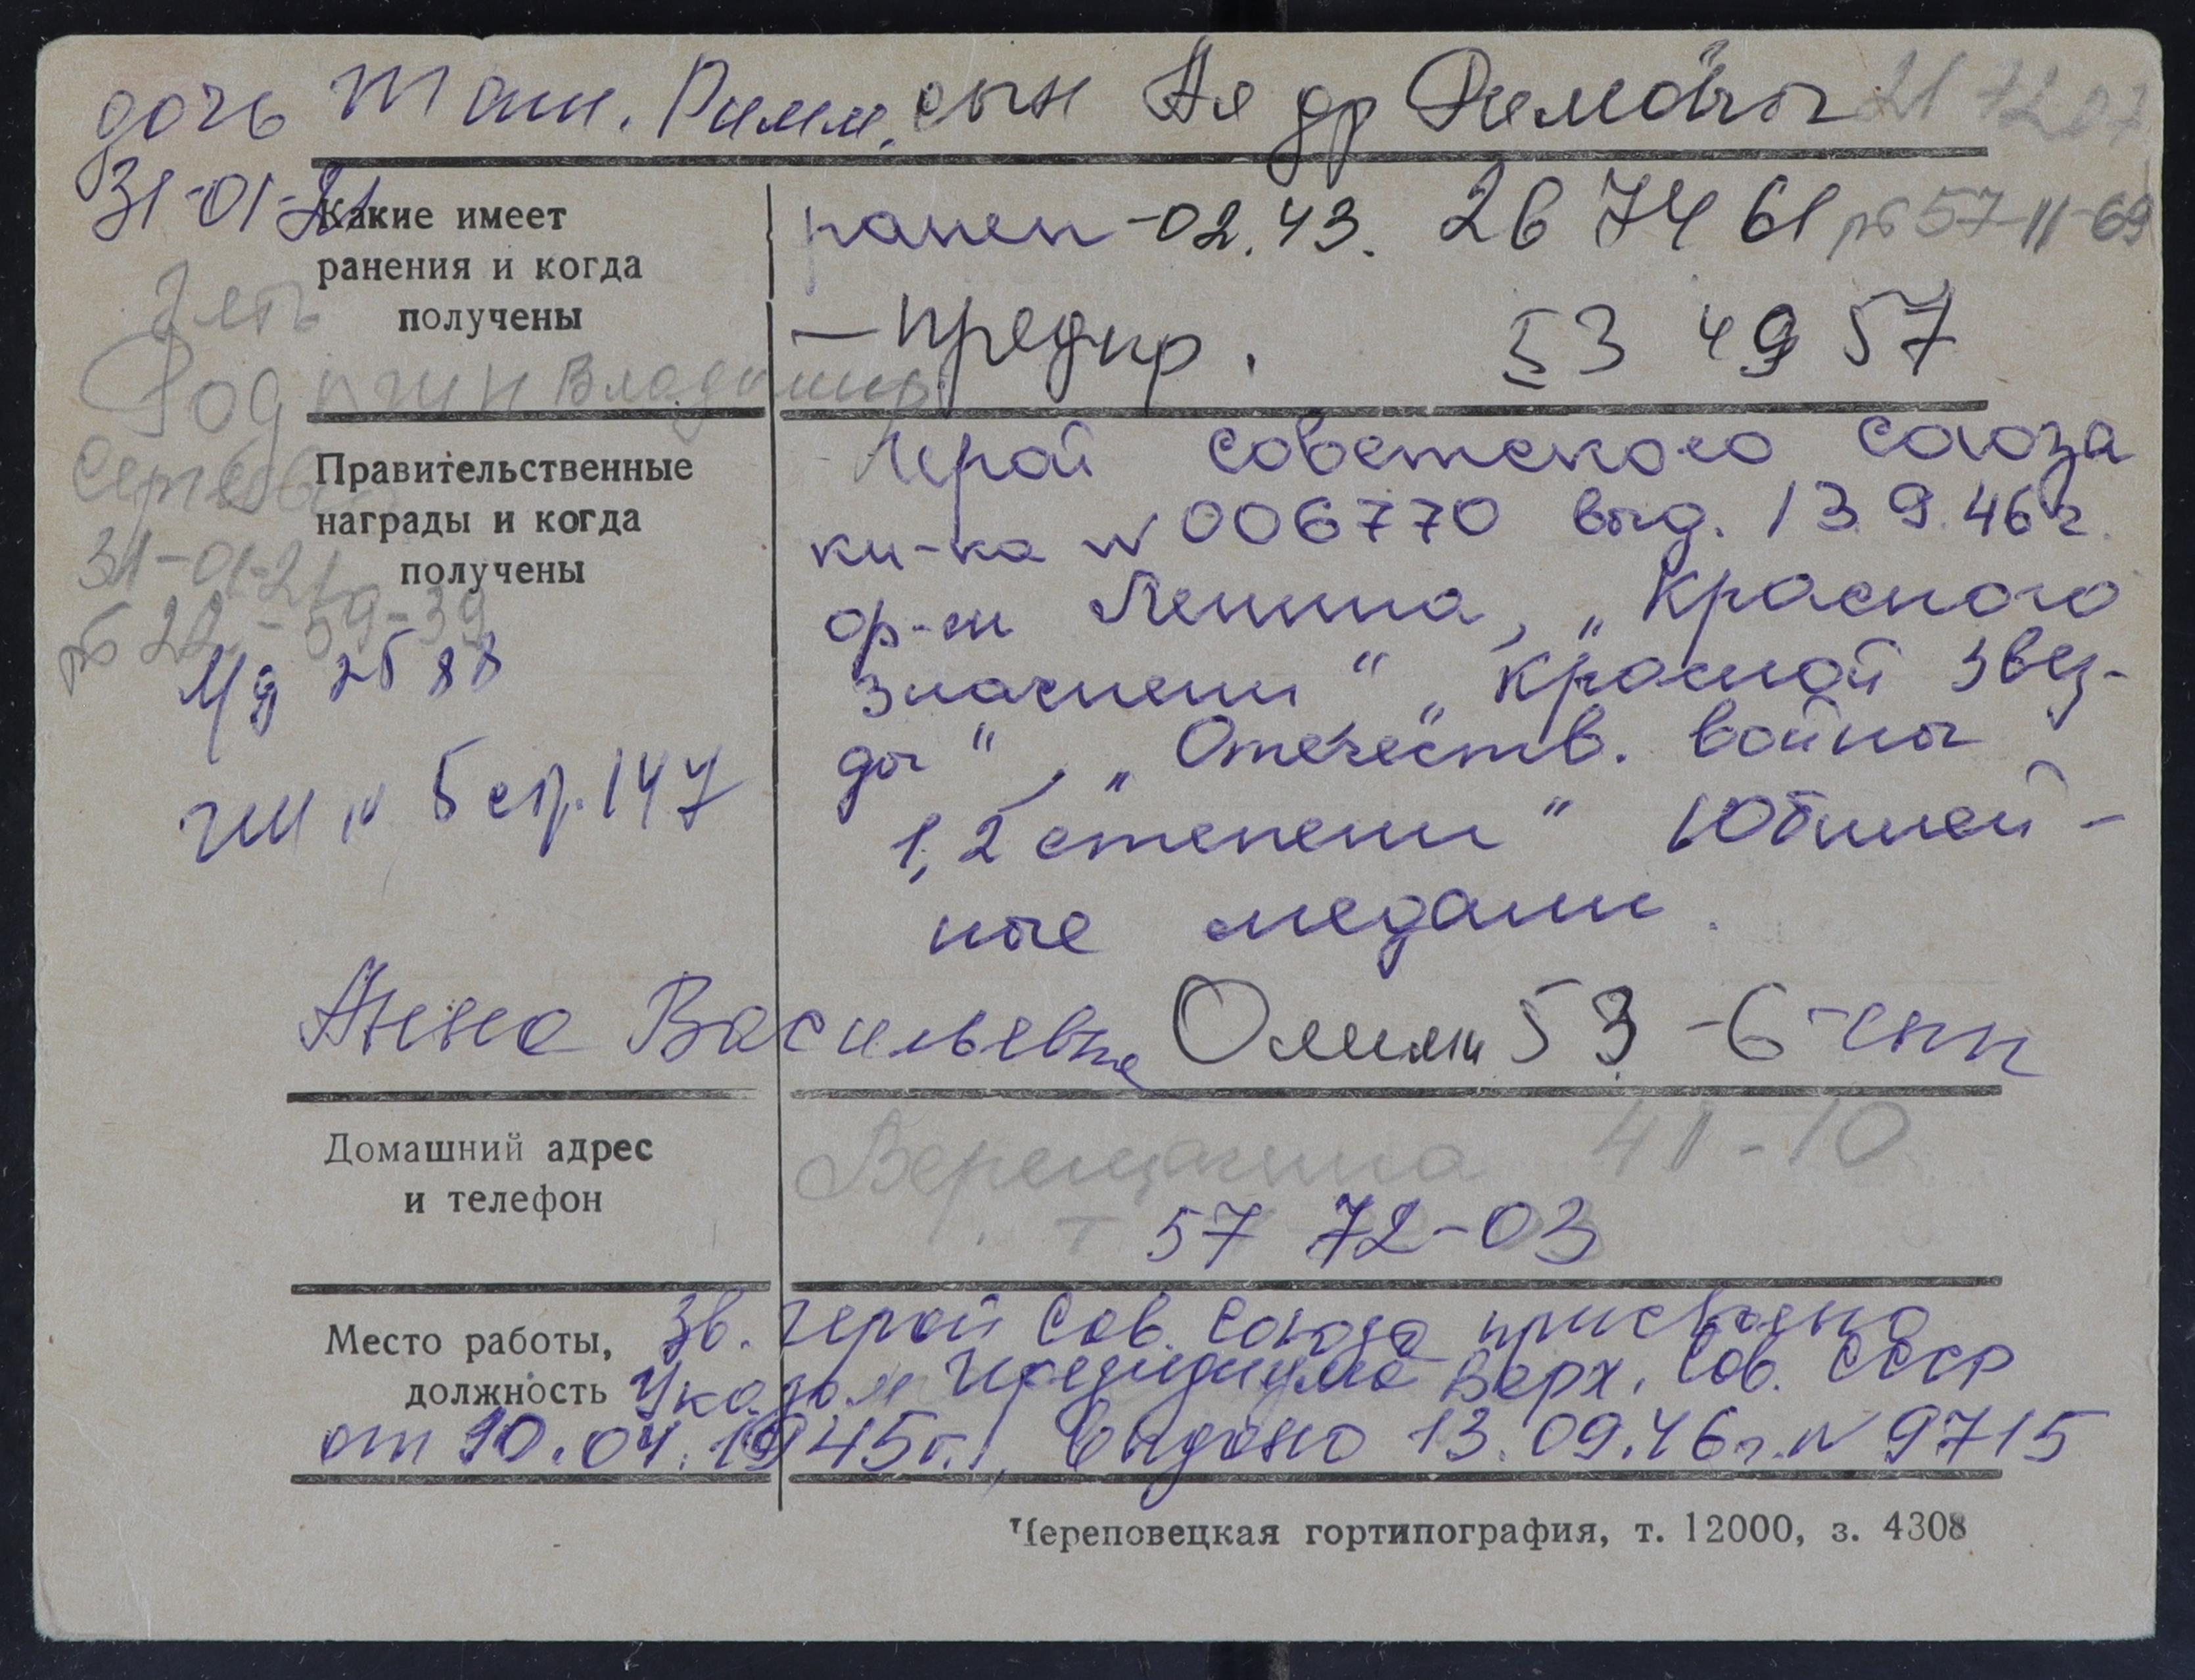 дочь Тат. Римм. сын Ал др Римович 21 72 03
31-01-21
Какие имеет
ранения и когда
получены
ранен -02.43. 26 74 61 рб 57-11-69
— предпр. 53 49 57
Зять
Владимир
Сергеевич
31-01-21
рб 22-59-39
Правительственные
награды и когда
получены
Герой Советского Союза
кн-ка № 006770 выд. 13.9.46 г.
ор-ен Ленина, „Красного
Знамени" „Красной Звез-
ды", „Отечеств. войны
1, 2 степени" Юбилей-
ные медали.
М/д 25 88
5 стр. 147
Анна Васильевна Олимп 53 -6-
Домашний адрес
и телефон
Верещагина 41-10
т 57 72-03
Место работы,
должность
Зв. Герой Сов. Союза присвоено
Указом Президиума Верх. Сов. СССР
от 10.04.1945 г., выдано 13.09.46 г. № 9715
Череповецкая гортипография, т. 12000, з. 4308